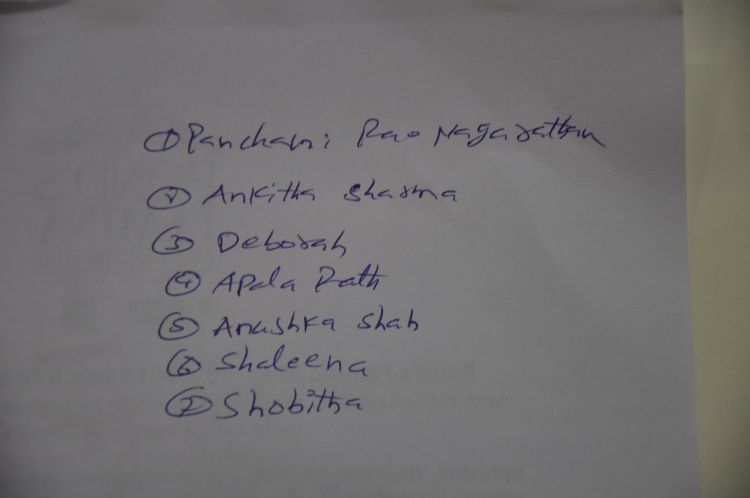 ① Panchami Rao Nagarathan
② Ankitha Sharma
③ Deborah
④ Apala Rath
⑤ Anushka Shah
⑥ Shaleena
⑦ Shobitha